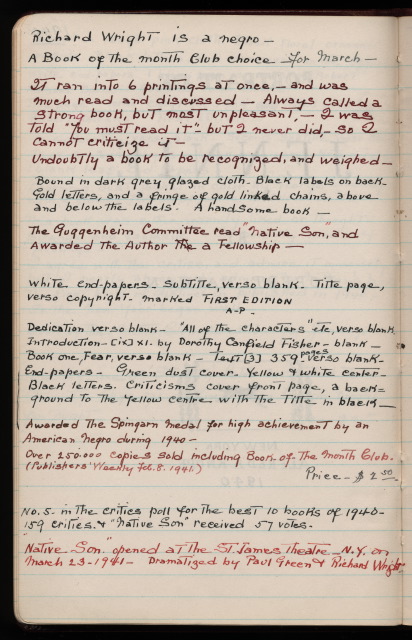 Richard Wright is a negro —
A Book of the month Club choice for March —
It ran into 6 printings at once, — and was
much read and discussed — Always called a
strong book, but most unpleasant, — I was
told "You must read it" but I never did, — so I
cannot criticize it —
Undoubtly a book to be recognized, and weighed —
Bound in dark grey glazed cloth. Black labels on back.
Gold letters, and a fringe of gold linked chains, above
and below the labels. A handsome book —
The Guggenheim Committee read "Native Son, and
Awarded the Author the a Fellowship —
White end-papers. Subtitle, verso blank. Title page,
verso copyright. marked FIRST EDITION
A-P.
Dedication verso blank — "All of the characters" etc, verso blank
Introduction — [ix] XI. by Dorothy Canfield Fisher — blank —
Book one, Fear, verso blank — Text [3] 359 pages verso blank —
End-papers — Green dust cover — Yellow & white center —
Black letters. Criticisms cover front page, a back=
ground to the yellow centre with the Title in black —
Awarded The Spingarn Medal for high achievement by an
American Negro during 1940 —
Over 250.000 copies sold including Book-of-The Month Club.
(Publishers' Weekly Feb. 8. 1941.)
Price — $ 2 50
No. 5. in the critics poll for the best 10 books of 1940 —
159 critics. & "Native Son" received 57 votes.
"Native Son" opened at The St. James Theatre — N.Y. on
March 23 - 1941 — Dramatized by Paul Green & Richard Wright